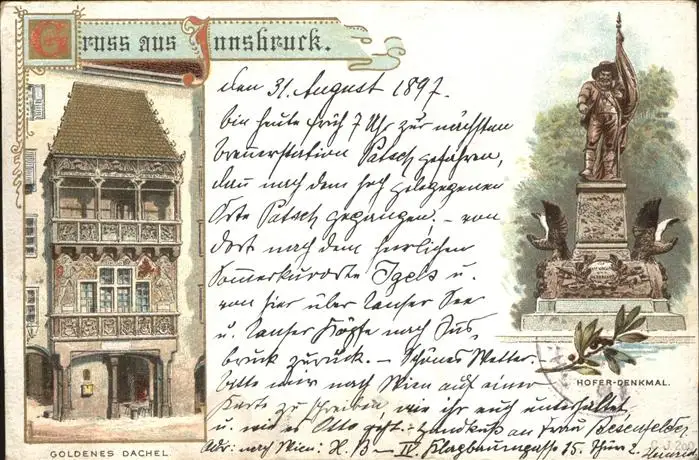 Gruss aus Innsbruck.
den 31. August 1897.
bin heute früh 7 Uhr zur nächsten
Brennerstation Patsch gefahren,
dann nach dem hoch gelegenen
Orte Patsch gegangen. – von
dort nach dem herrlichen
Sommerkurorte Igels u.
von hier über Lanser See
u. Lanser Köpfe nach Inns
bruck zurück. – Schönes Wetter. –
bitte mir nach Wien auf einer
Karte zu schreiben wie ihr euch unterhaltet
u. wie es Otto geht. – Handkuß an Frau
Adr: nach Wien: H. B – IV. Klagbaumgasse 15. Thür 2.
GOLDENES DACHEL.
HOFER-DENKMAL.